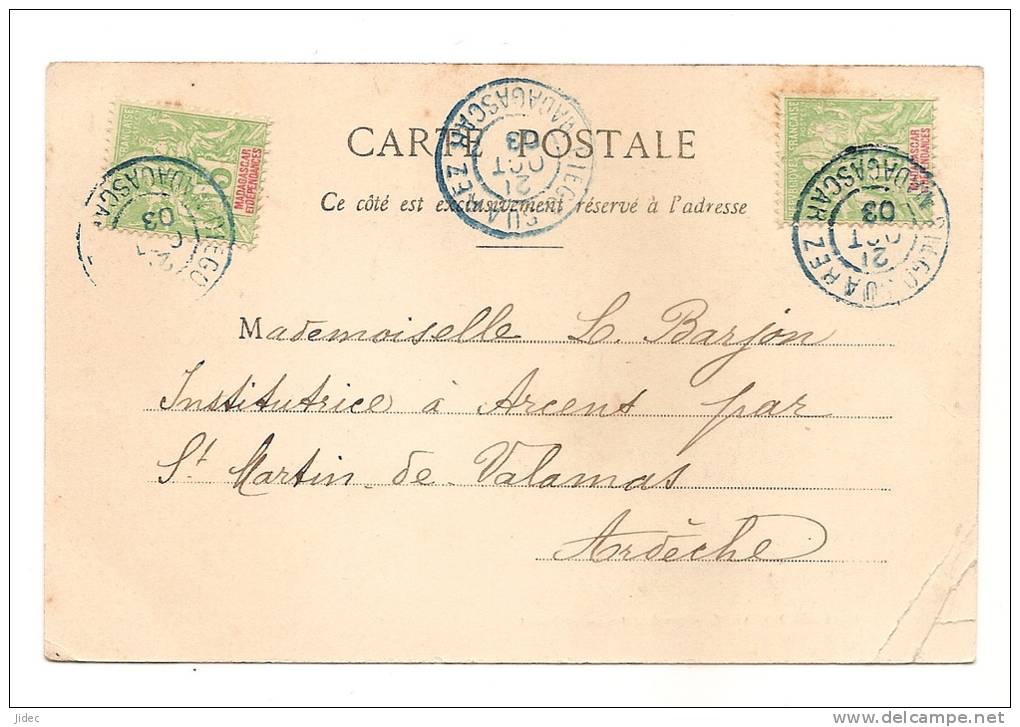 CARTE POSTALE
Ce côté est exclusivement réservé à l'adresse
MADAGASCAR
ET DÉPENDANCES
5
DIEGO
MADAGASCAR
OCT
03
DIEGO SUAREZ
MADAGASCAR
21
OCT
03
MADAGASCAR
DIEGO SUAREZ
MADAGASCAR
21
OCT
03
Mademoiselle L. Barjon
Institutrice à Arcens par
St Martin-de-Valamas
Ardèche
jidec
www.delcampe.net